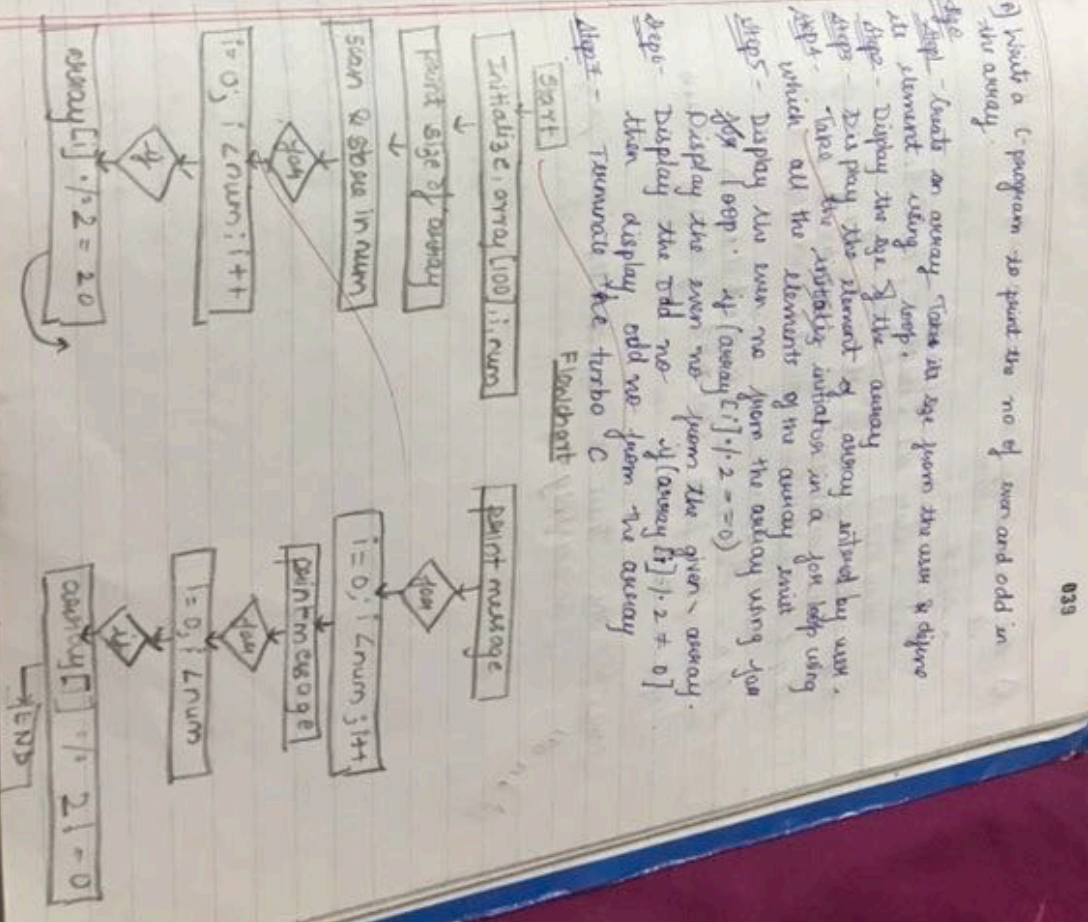 039
A) Write a C-program to print the no of even and odd in
the array.
Step1 - Create an array Takes its sze from the user & define
its element using loop.
Step2 - Display the sze of the array
Step3 - Display the element of array entered by user.
Step4 - Take the initializ initiator in a for loop using
which all the elements of the array exist
Step5 - Display the even no from the array using for
for loop. if (array[i]%2==0)
Display the even no from the given array.
Step6 - Display the odd no if (array[i]%2≠0]
then display odd no from the array
Step7 - Terminate the turbo C
Flowchart
Start
Initialize, array[100], i, num
print size of array
scan & store in num
for
i=0; i<num; i++
if
array[i]%2=20
print message
for
i=0; i<num; i++
print message
for
i=0; i<num
if
array[] % 2!=0
END